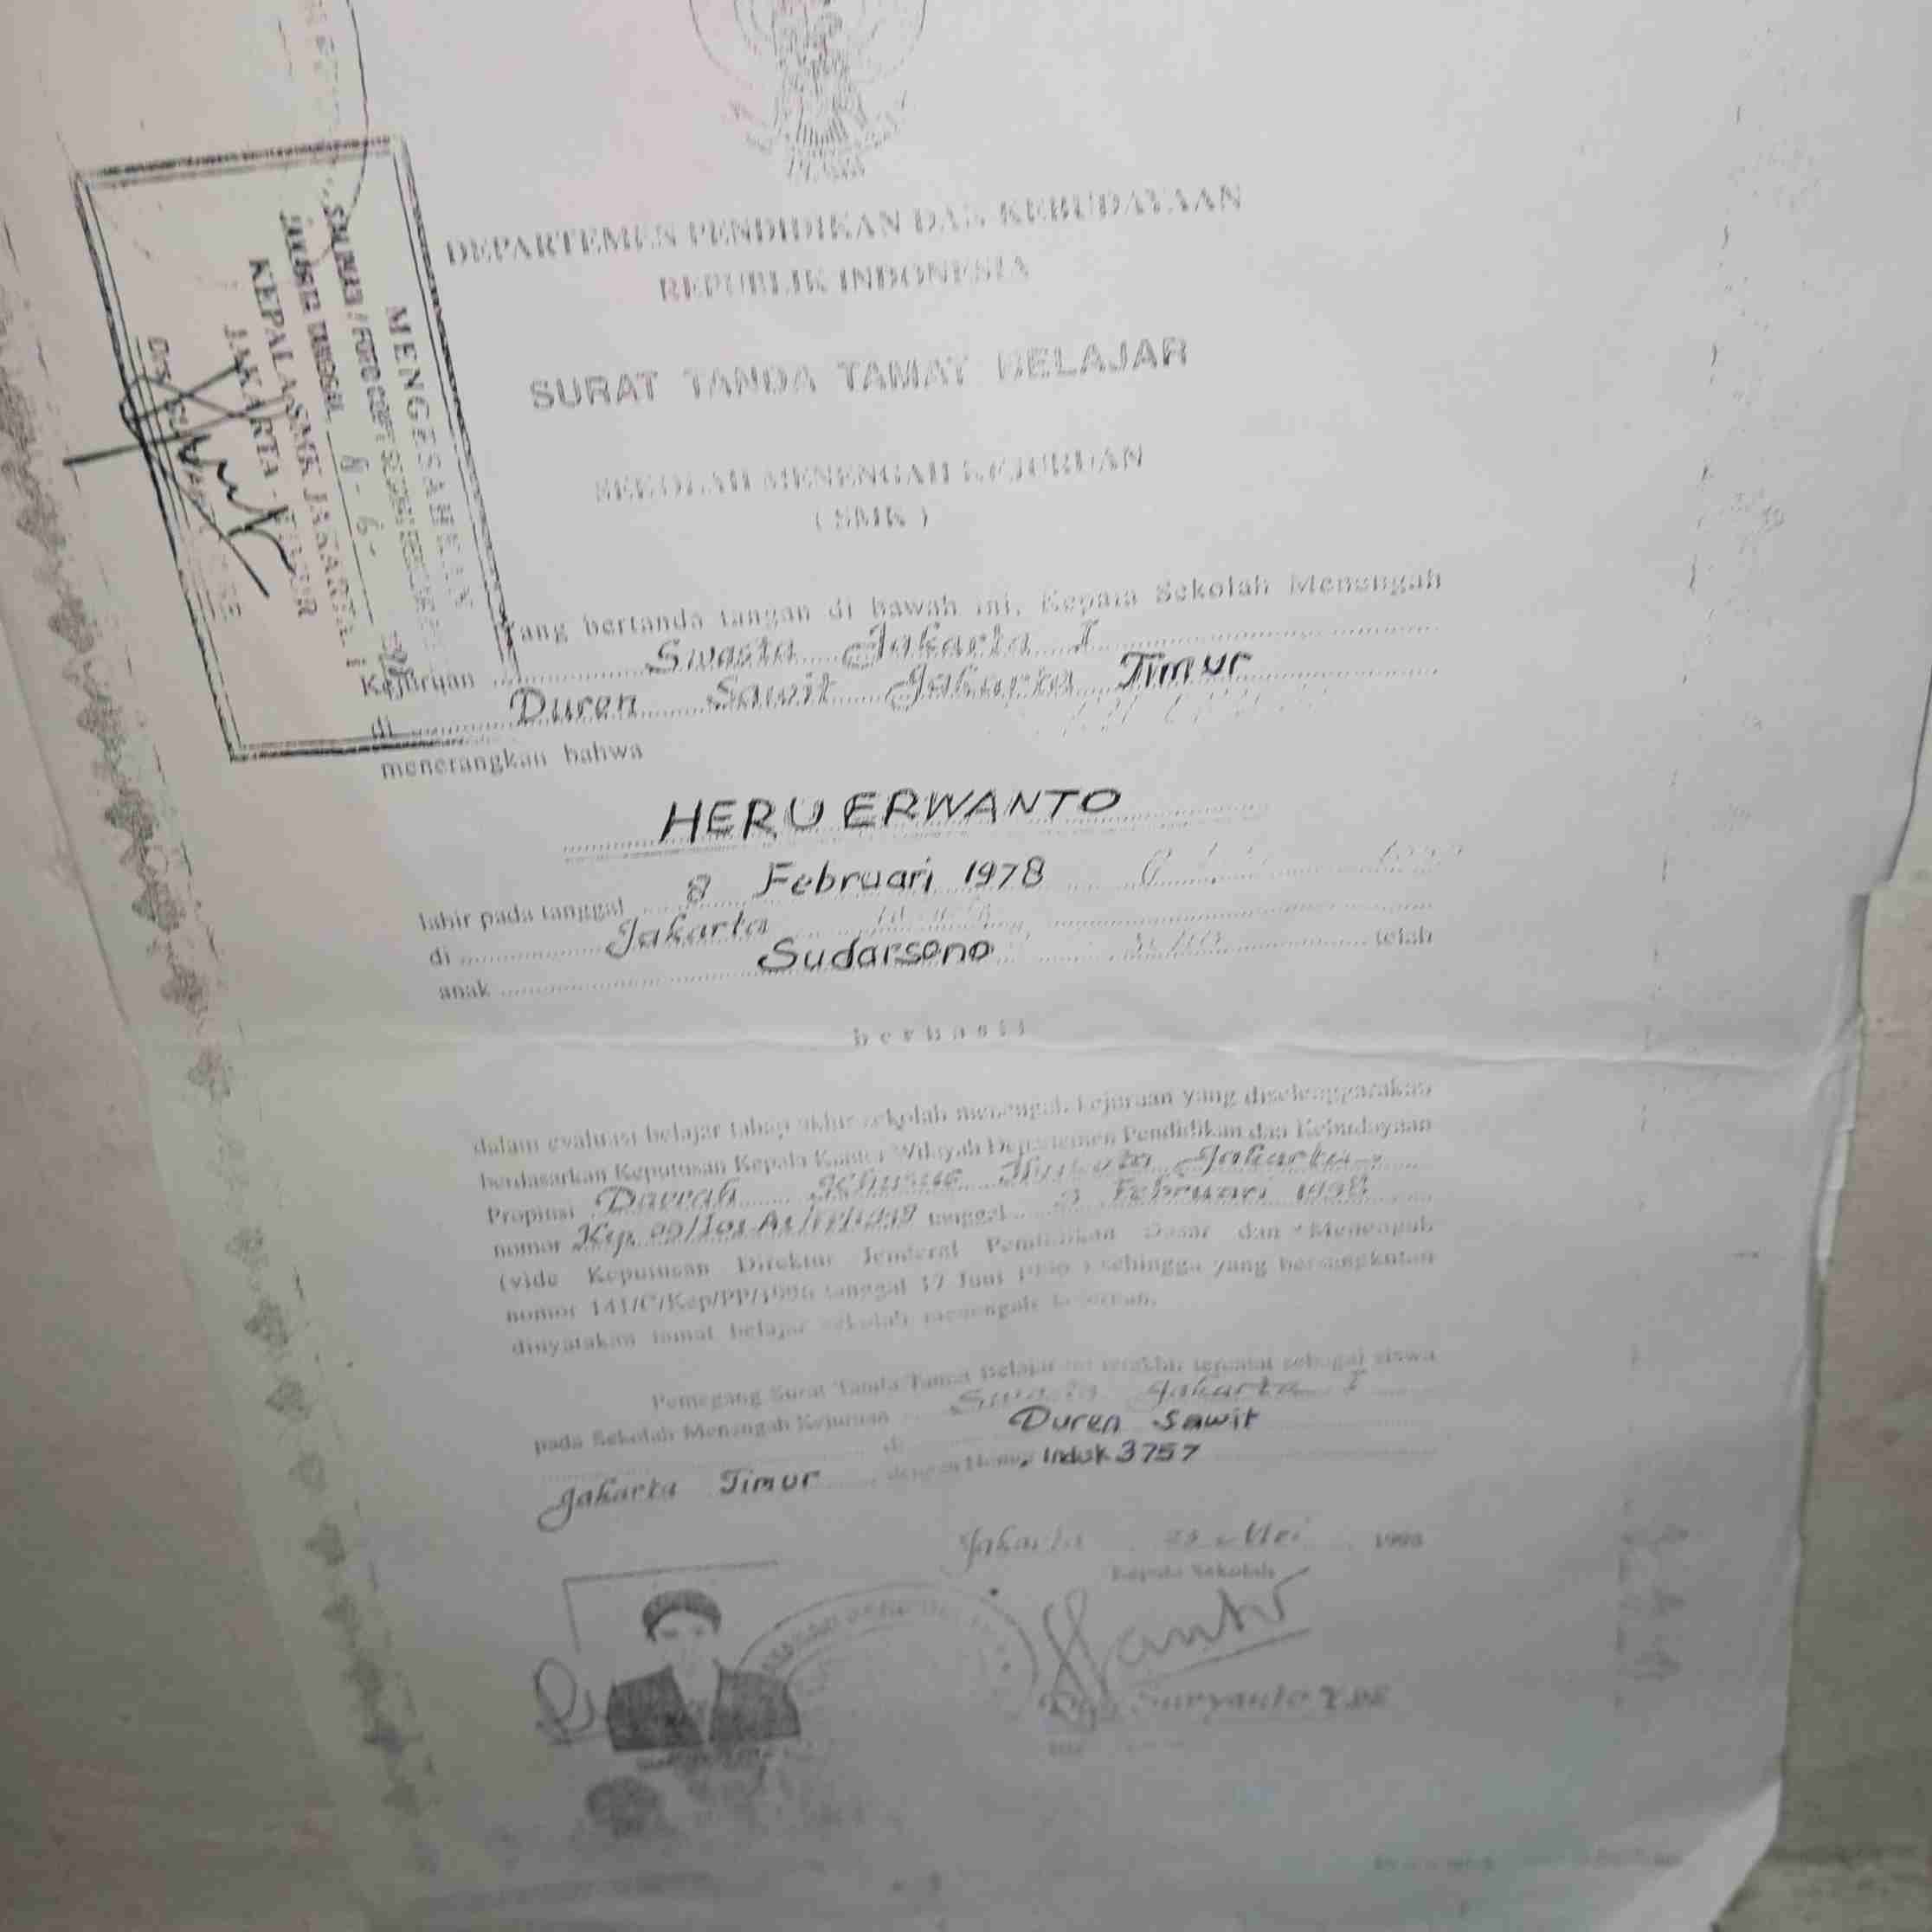 DEPARTEMEN PENDIDIKAN DAN KEBUDAYAAN
REPUBLIK INDONESIA
SURAT TANDA TAMAT BELAJAR
SEKOLAH MENENGAH KEJURUAN
( SMK )
Yang bertanda tangan di bawah ini, Kepala Sekolah Menengah
Kejuruan Swasta Jakarta I
di Duren Sawit Jakarta Timur
menerangkan bahwa
HERU ERWANTO
lahir pada tanggal 8 Februari 1978
di Jakarta
anak Sudarsono telah
berhasil
dalam evaluasi belajar tahap akhir sekolah menengah kejuruan yang diselenggarakan
berdasarkan Keputusan Kepala Kantor Wilayah Departemen Pendidikan dan Kebudayaan
Propinsi Daerah Khusus Ibukota Jakarta
nomor tanggal Februari 1998
(vide Keputusan Direktur Jenderal Pendidikan Dasar dan Menengah
nomor 141/C/Kep/PP/1996 tanggal 17 Juni 1996 ) sehingga yang bersangkutan
dinyatakan tamat belajar sekolah menengah kejuruan.
Pemegang Surat Tanda Tamat Belajar ini terakhir tercatat sebagai siswa
pada Sekolah Menengah Kejuruan Swasta Jakarta I
di Duren Sawit
Jakarta Timur dengan Nomor Induk 3757
Jakarta Mei 1998
Kepala Sekolah
Suryanto
MENGESAHKAN
SALINAN / FOTO COPY SESUAI DENGAN
KEPALA SMK JAKARTA I
JAKARTA - TIMUR